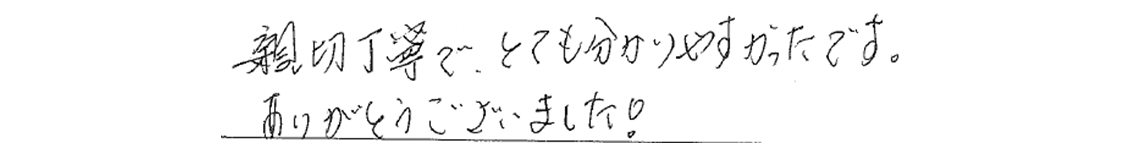 親切丁寧で、とても分かりやすかったです。
ありがとうございました!